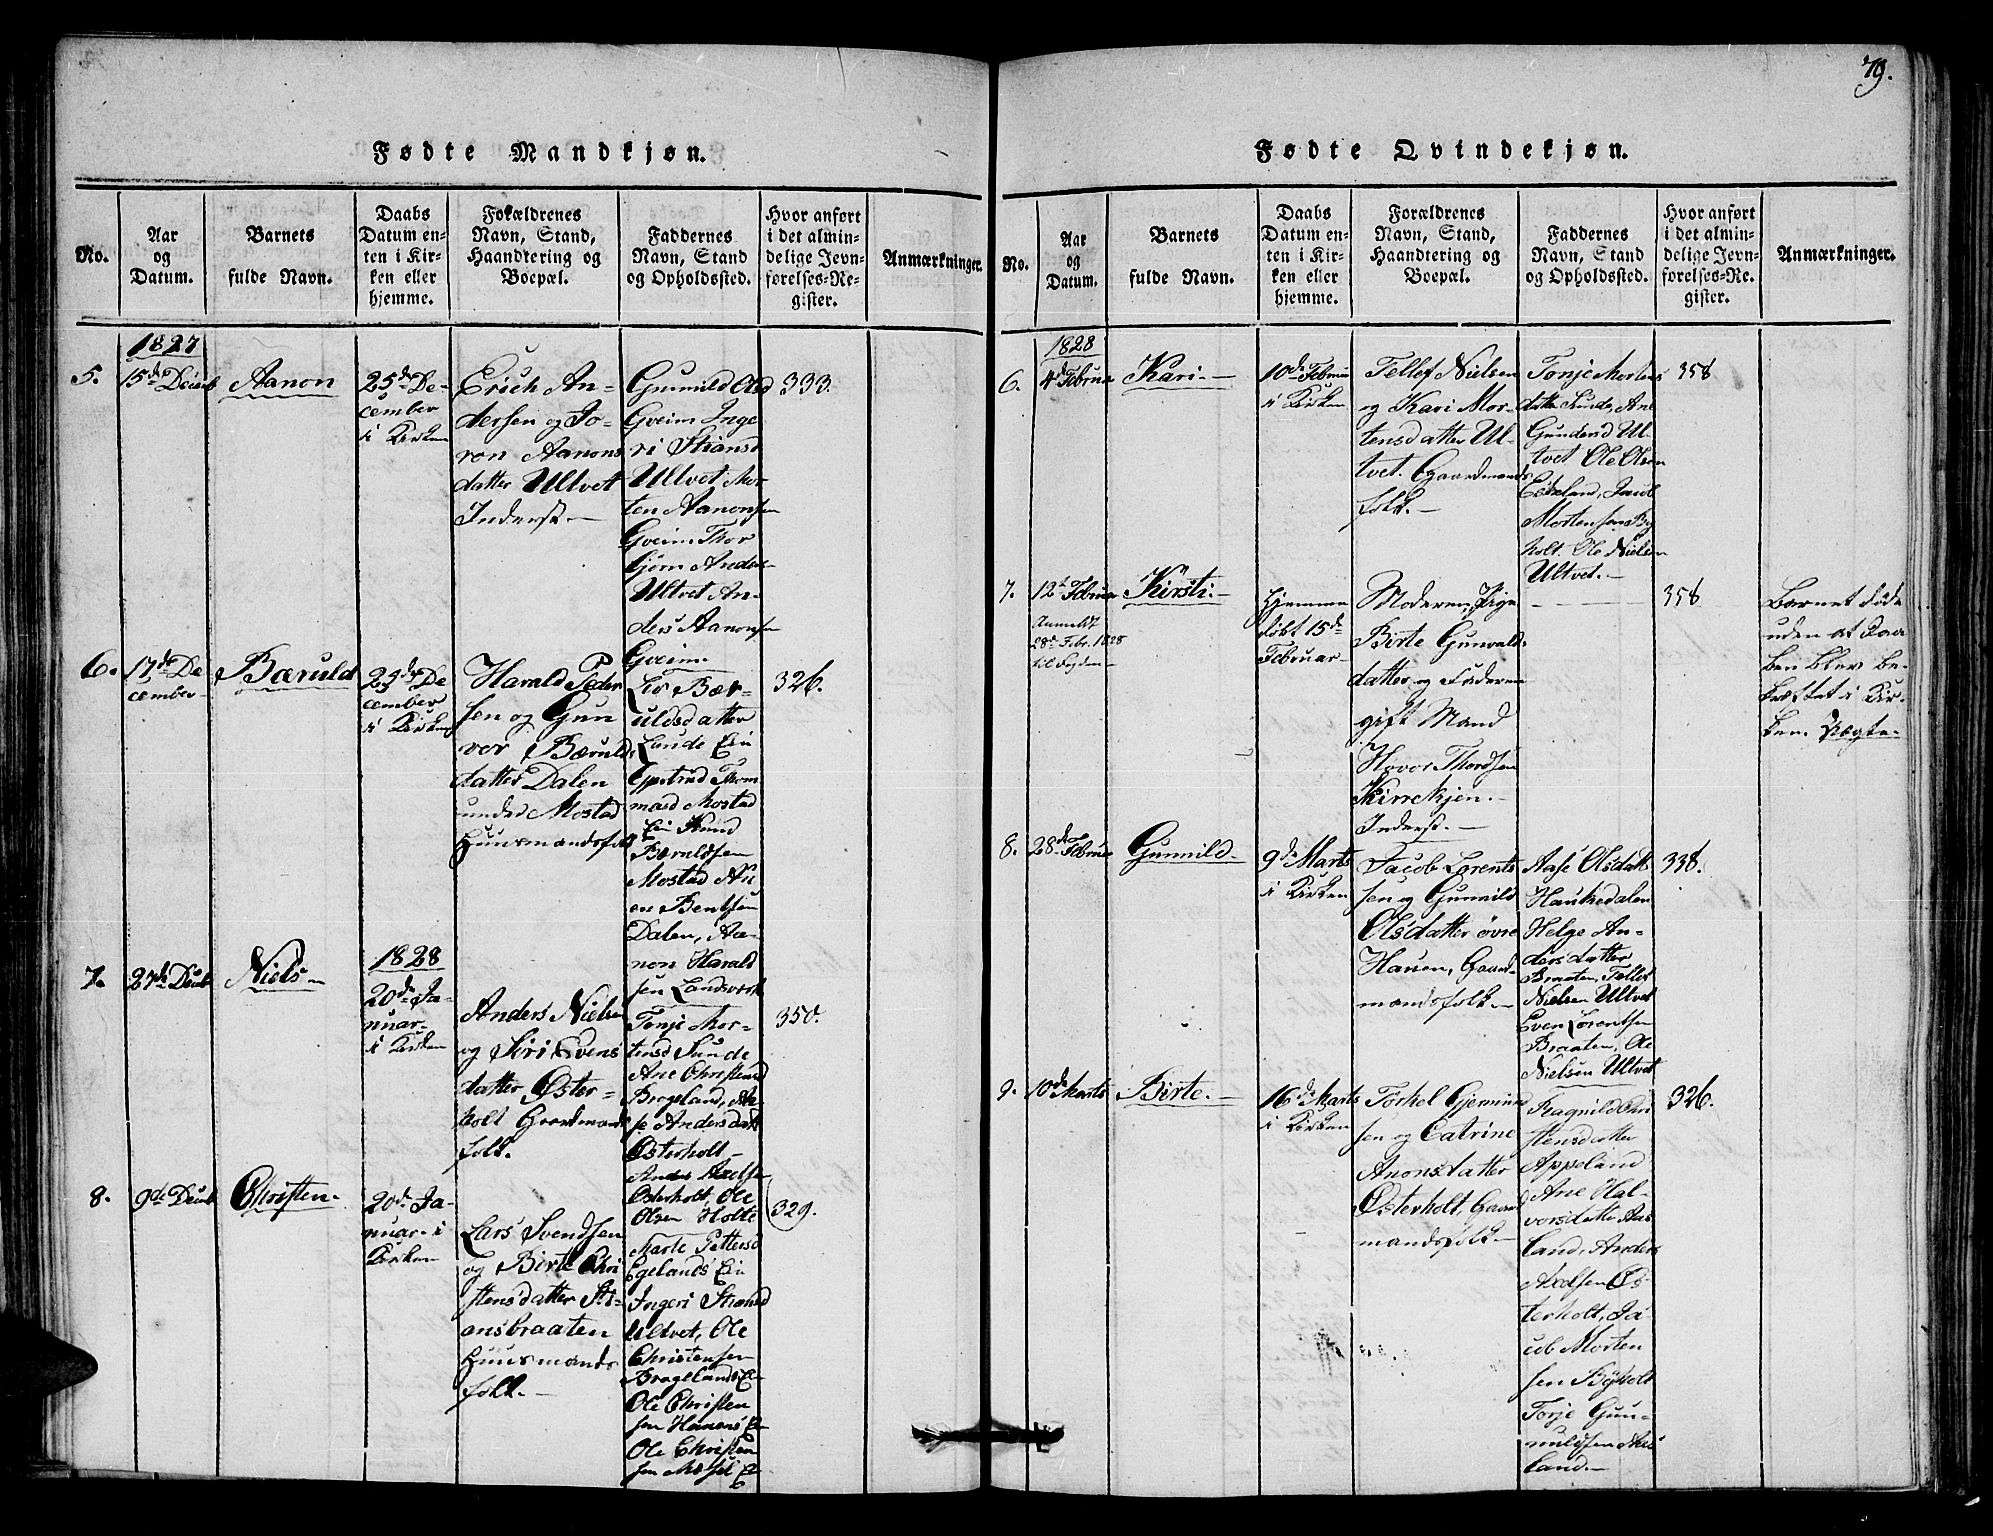 79.
Fødte Mandkjøn.
No.
Aar
og
Datum.
Barnets
fulde Navn.
Daabs
Datum en-
ten i Kir-
ken eller
hjemme.
Forældrenes
Navn, Stand,
Haandtering og
Boepæl.
Faddernes
Navn, Stand
og Opholdssted.
Hvor anført
i det almin-
delige Jevn-
førelses-Re-
gister.
Anmærkninger.
1827
5.
15de Decemb
Aanon
25de De-
cember
i Kirken
Erich An-
dersen og Jo-
ron Aanons
datter Ultvet
Inderst.-
Gunnild Olsd
Gveim Inge
ri Stiansd
Ultvet Mor-
ten Aanonsen
Gveim Thor
Gjøm Anders-
Ultvet An-
ders Aanonsen
Gveim.
333.
6.
17de De
cember-
Bæruld
23de De
cember
i Kirken
Harald Peder
sen og Gun
vor Bæruld
datter Dalen
under Mostad
Huusmandsfolk
Liv Bær-
ulds datter
Lande Ein
Gjertrud Thom
masd Mostad
Ein Knud
Bæruldsen
Mostad
en Bentsen
Dalen, Aa-
non Harald
sen Landsverk
326.
7.
27de Decemb
Niels-
1828
20de Ja-
nuar-
i Kirken
Anders Nielsen
og Siri Evens
datter Øster-
holt Gaardmands
folk.
Tonje Mor-
tensd Sunde
Ane Christensd
Brageland, Aa-
se Andersdatt
Østerholt-
Anders Axelsen
Østerholt, Ole
Olsen Holte
350.
8.
9de Decemb
Christen-
20de Ja-
nuar- i
Kirken
Lars Svendsen
og Birte Chri
stensdatter Sti-
ansbraaten
Huusmands
folk.-
Marte Pettersd
Egelands Ein
Ingeri Stiansd
Ultvet, Ole
Christensen
Bragelands E-
Ole Christen
sen Hauens E-
Ole Christen
sen E-
329.
Fødte Qvindekjøn.
No.
Aar
og
Datum.
Barnets
fulde Navn.
Daabs
Datum en-
ten i Kir-
ken eller
hjemme.
Forældrenes
Navn, Stand,
Haandtering og
Boepæl.
Faddernes
Navn, Stand
og Opholdssted.
Hvor anført
i det almin-
delige Jevn-
førelses-Re-
gister.
Anmærkninger.
1828
6.
4de Februar
Kari.-
10de Februa
i Kirken
Tellef Nielsen
og Kari Mor-
tensdatter Ul-
tvet. Gaardmands
folk.-
Tonje Mortens
datter Sunde, Ane
Gundersd Ul-
tvet Ole Olsen
Eikeland, Jacob
Mortensen By
holt. Ole Nielsen
Ultvet.-
358
7.
12te Februar
Anmeldt
28de Febr. 1828
til Fogden-
Kirsti.-
Hjemme
døbt 15de
Februar-
Moderen, Pige
Birte Gunvald-
datter og Faderen
gift Mand
Hovor Thordsen
Kirrekjen.-
Inderst.-
358
Barnet døde
uden at Daa
ben blev be-
kræftet i Kir-
ken. Uægte-
8.
28de Februar
Gunnild-
9de Marts
i Kirken
Jacob Lorents
sen og Gunnild
Olsdatter øvre
Hauen, Gaard-
mandsfolk-
Aase Olsdatt
Haukedalen
Helge An-
ders datter
Braaten, Tellef
Nielsen Ultvet
Even Lorentsen
Braaten, Ole
Nielsen Ultvet
338.
9.
10de Marts
Birte.-
16de Marts
i Kirken
Torkel Gjermund
sen og Catrine
Anonsdatter
Østerholt, Gaard
mandsfolk-
Ragnild Chri
stensdatter
Appeland
Ane Hal-
vorsdatter Aas
land, Anders
Axelsen Øs-
terholt, Ja-
cob Morten
sen Byholt
Torje Gun-
nuldsen Aas
land.-
326.